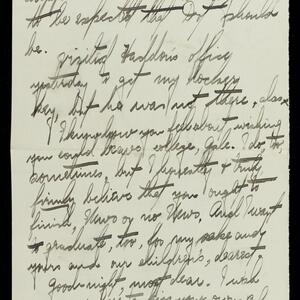 to be expected that Dot should
be.
Visited Haddon's office
yesterday to get my locker
key, but he was not there, alas.
I know how you feel about wishing
you could leave college, Gale. I do, too,
sometimes, but I honestly & truly
firmly believe that you ought to
finish, News or no News. And I want
to graduate, too, for my sake and
yours and our children's, dearest.
Good-night, most dear. I wish